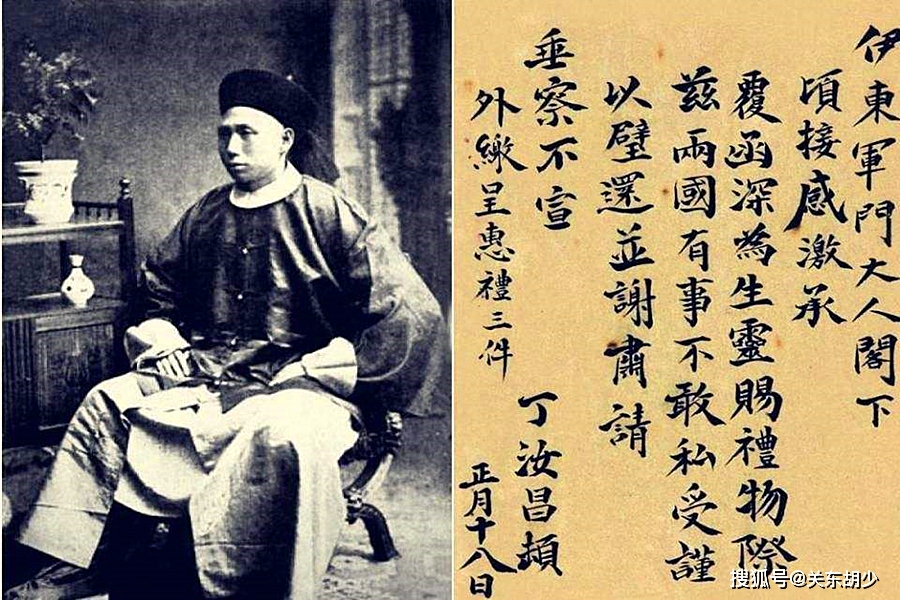 伊東軍門大人閣下
頃接感激承
覆函深為生靈賜禮物際
茲兩國有事不敢私受謹
以璧還並謝肅請
垂察不宣
丁汝昌頓
外繳呈惠禮三件
正月十八日
搜狐号@关东胡少